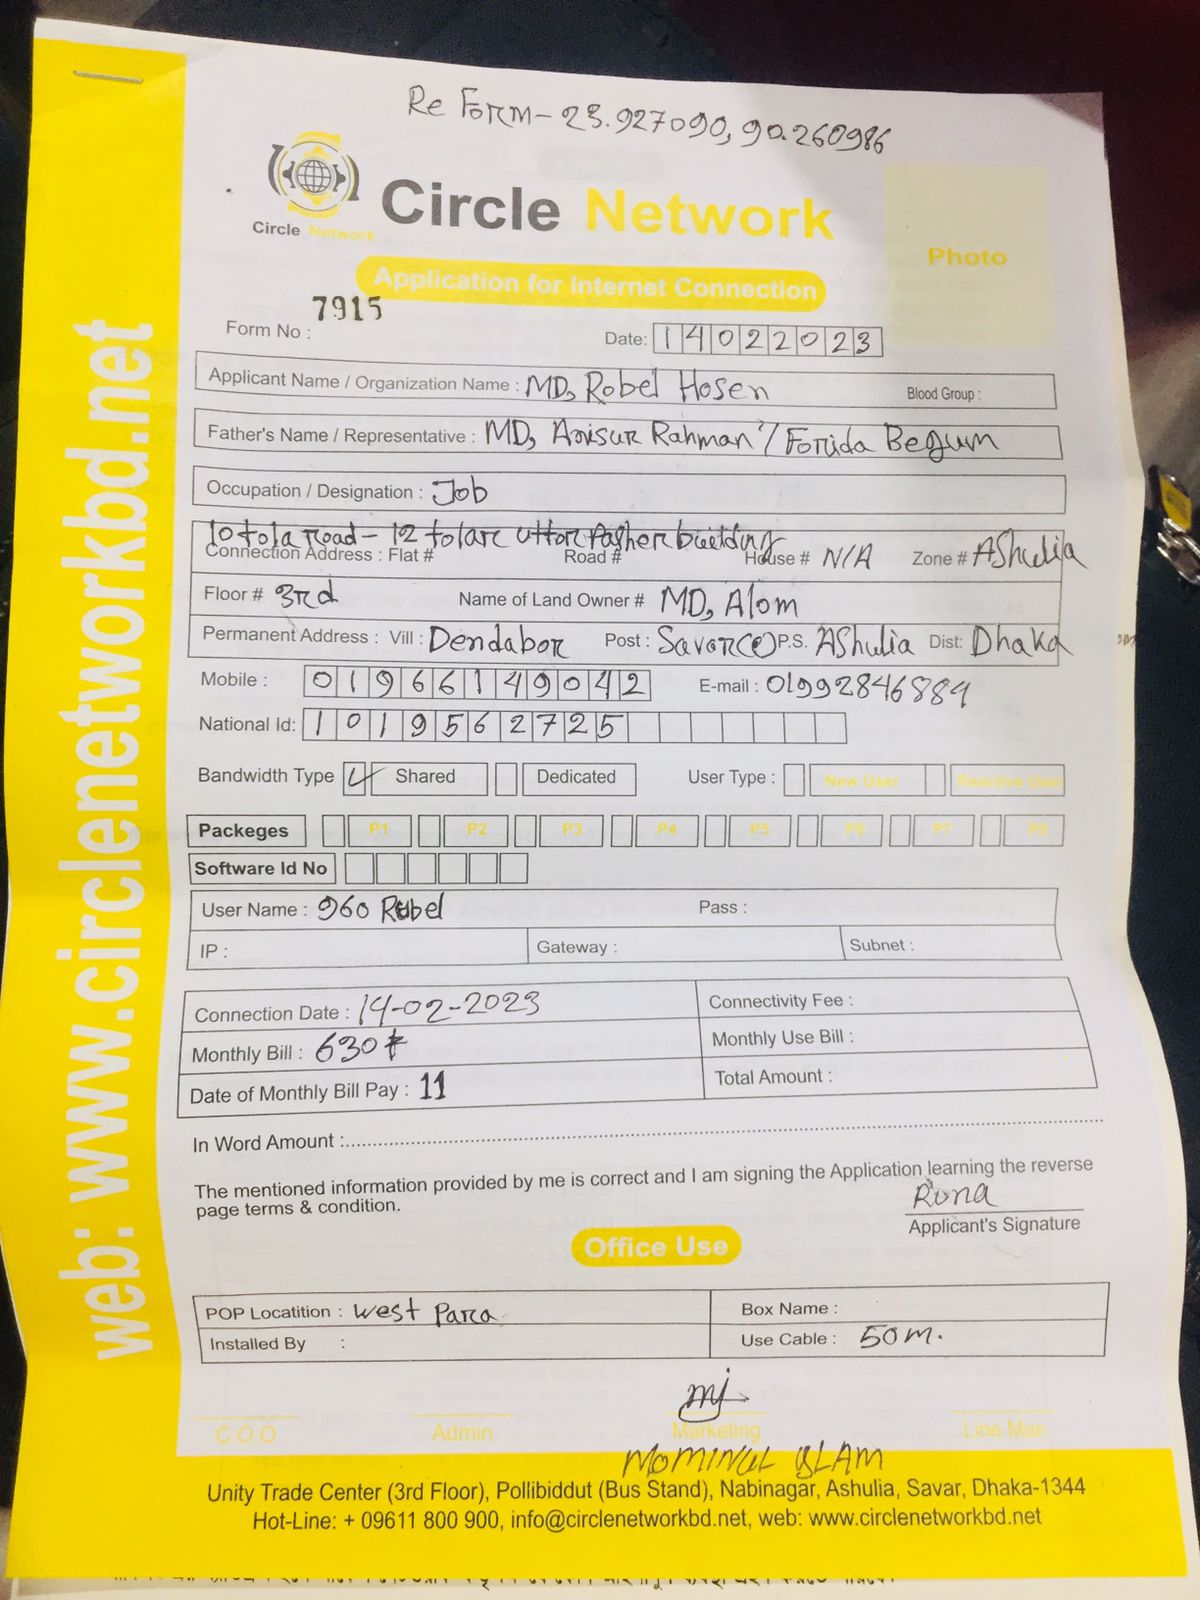 Re Form - 23.927090, 90.260986
Circle Network
Circle Network
Photo
Application for Internet Connection
Form No : 7915
Date: 14022023
Applicant Name / Organization Name : MD, Robel Hosen Blood Group :
Father's Name / Representative : MD, Anisur Rahman / Forida Begum
Occupation / Designation : Job
10 tola road - 12 tolar uttor Pasher building
Connection Address : Flat # Road # House # N/A Zone # AShulia
Floor # 3rd Name of Land Owner # MD, Alom
Permanent Address : Vill : Dendabor Post : Savar P.S. AShulia Dist: Dhaka
Mobile : 01966149042 E-mail : 01992846884
National Id: 1019562725
Bandwidth Type Shared Dedicated User Type : New User Reactive User
Packeges P1 P2 P3 P4 P5 P6 P7 P8
Software Id No
User Name : 960 Rubel Pass :
IP : Gateway : Subnet :
Connection Date : 14-02-2023 Connectivity Fee :
Monthly Bill : 630 Monthly Use Bill :
Date of Monthly Bill Pay : 11 Total Amount :
In Word Amount :
The mentioned information provided by me is correct and I am signing the Application learning the reverse
page terms & condition.
Rona
Applicant's Signature
Office Use
POP Locatition : West Para Box Name :
Installed By : Use Cable : 50m.
C.O.O Admin Marketing Line Man
MOMINUL ISLAM
Unity Trade Center (3rd Floor), Pollibiddut (Bus Stand), Nabinagar, Ashulia, Savar, Dhaka-1344
Hot-Line: + 09611 800 900, info@circlenetworkbd.net, web: www.circlenetworkbd.net
web: www.circlenetworkbd.net